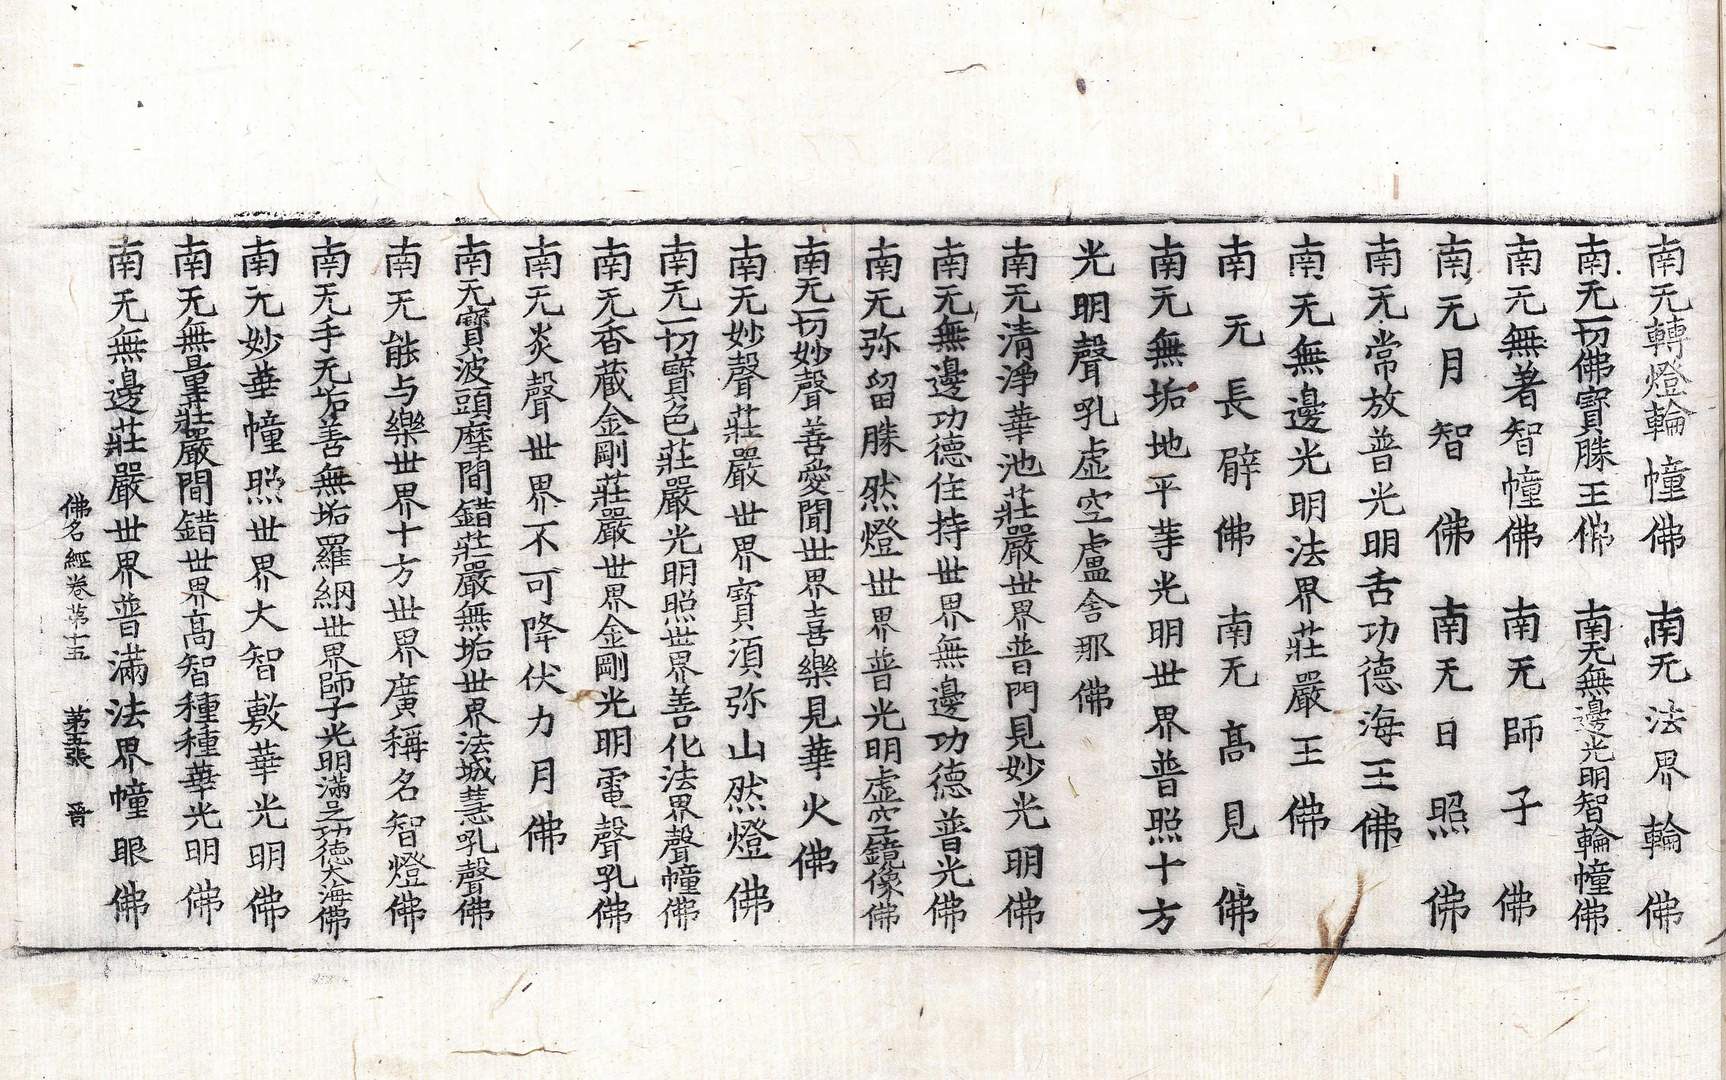 南无轉燈輪幢佛　南无法界輪佛
南无一切佛寶勝王佛　南无無邊光明智輪幢佛
南无無著智幢佛　南无師子佛
南无月智佛　南无日照佛
南无常放普光明舌功德海王佛
南无無邊光明法界莊嚴王佛
南无長臂佛　南无髙見佛
南无無垢地平等光明世界普照十方
光明聲吼虛空盧舍那佛
南无清淨華池莊嚴世界普門見妙光明佛
南无無邊功德住持世界無邊功德普光佛
南无弥留勝然燈世界普光明虛空鏡像佛
南无一切妙聲善愛聞世界喜樂見華火佛
南无妙聲莊嚴世界寶須弥山然燈佛
南无一切寶色莊嚴光明照世界善化法界聲幢佛
南无香藏金剛莊嚴世界金剛光明電聲吼佛
南无炎聲世界不可降伏力月佛
南无寶波頭摩間錯莊嚴無垢世界法城慧吼聲佛
南无能与樂世界十方世界廣稱名智燈佛
南无手无垢善無垢羅網世界師子光明滿足功德大海佛
南无妙華幢照世界大智敷華光明佛
南无無量莊嚴間錯世界髙智種種華光明佛
南无無邊莊嚴世界普滿法界幢眼佛
佛名經卷第十五　第五張　晉